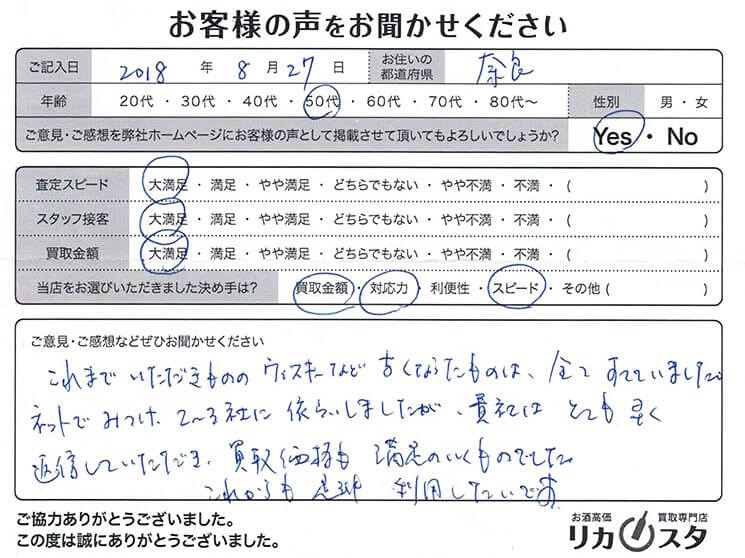 お客様の声をお聞かせください
ご記入日 2018 年 8 月 27 日 お住いの都道府県 奈良
年齢 20代 ・ 30代 ・ 40代 ・ 50代 ・ 60代 ・ 70代 ・ 80代～ 性別 男 ・ 女
ご意見・ご感想を弊社ホームページにお客様の声として掲載させて頂いてもよろしいでしょうか? Yes ・ No
査定スピード 大満足 ・ 満足 ・ やや満足 ・ どちらでもない ・ やや不満 ・ 不満 ・ ( )
スタッフ接客 大満足 ・ 満足 ・ やや満足 ・ どちらでもない ・ やや不満 ・ 不満 ・ ( )
買取金額 大満足 ・ 満足 ・ やや満足 ・ どちらでもない ・ やや不満 ・ 不満 ・ ( )
当店をお選びいただきました決め手は? 買取金額 ・ 対応力 ・ 利便性 ・ スピード ・ その他 ( )
ご意見・ご感想などぜひお聞かせください
これまで いただきものの ウィスキーなど 古くなったものは、全て すてていました。
ネットで みつけ、2〜3社に 依らいしましたが、貴社は とても 早く
返信していただき、買取価格も 満足のいくものでした。
これからも 是非 利用したいです。
ご協力ありがとうございました。
この度は誠にありがとうございました。
お酒高価 買取専門店
リカスタ